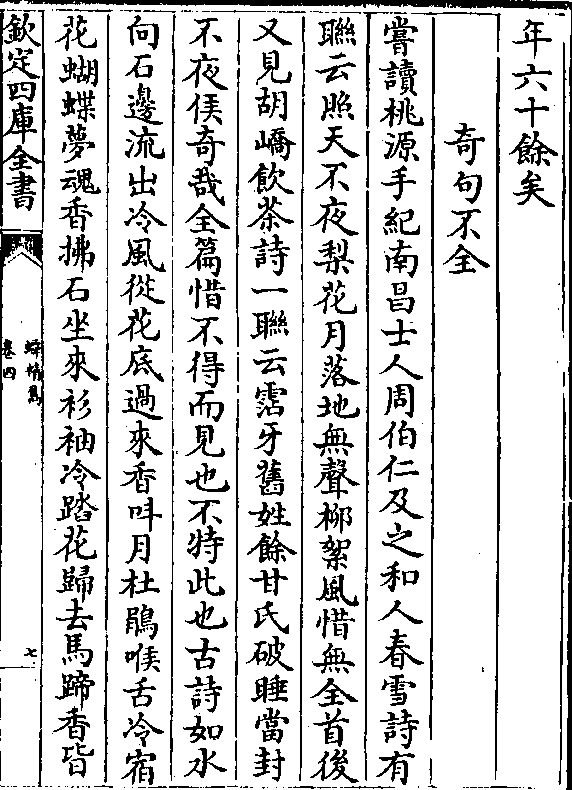 年六十餘矣
奇句不全
嘗讀桃源手紀南昌士人周伯仁及之和人春雪詩有
聯云照天不夜梨花月落地無聲柳絮風惜無全首後
又見胡嶠飲茶詩一聯云霑牙舊姓餘甘氏破睡當封
不夜侯奇哉全篇惜不得而見也不特此也古詩如水
向石邊流出冷風從花底過來香呌月杜鵑喉舌冷宿
花蝴蝶夢魂香拂石坐來衫袖冷踏花歸去馬蹄香皆
欽定四庫全書
蟫精雋
卷四
七